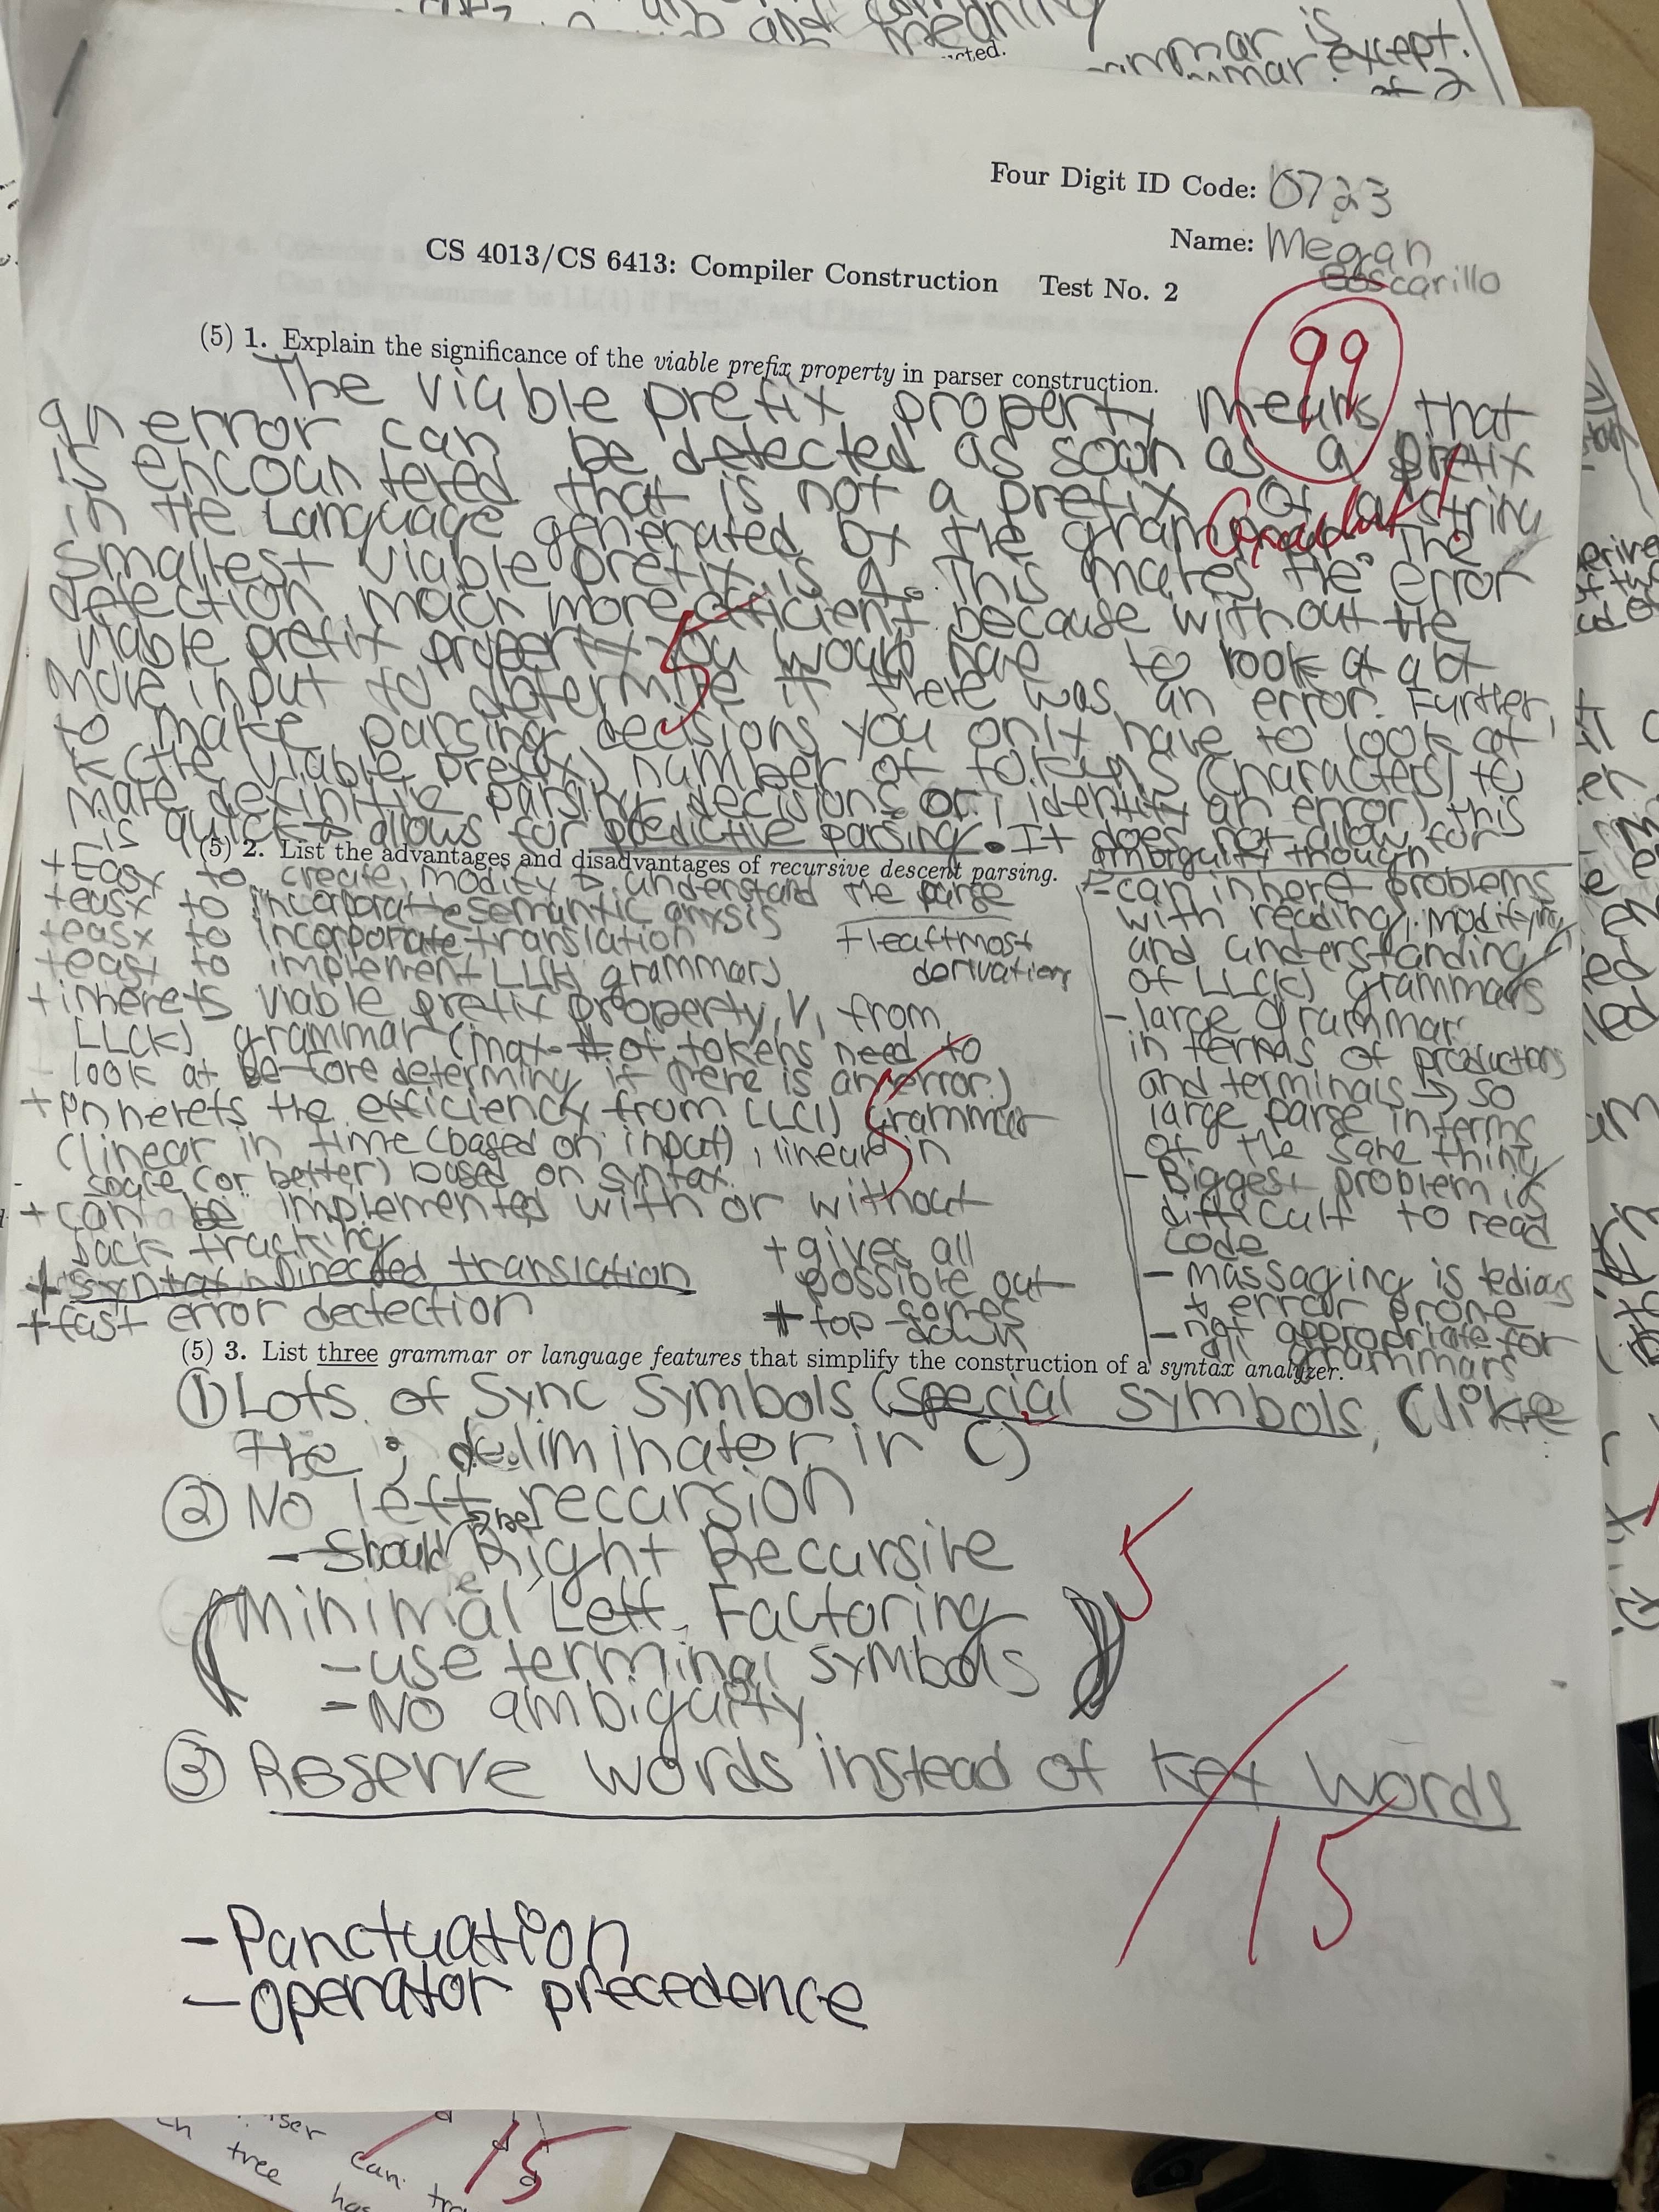 and meaning
cted.
mmar is
mmar except.
of 2
Four Digit ID Code: 0723
Name: Megan
Boscarillo
CS 4013/CS 6413: Compiler Construction Test No. 2
99
Excellent!
(5) 1. Explain the significance of the viable prefix property in parser construction.
The viable prefix property means that
an error can be detected as soon as a prefix
is encountered that is not a prefix of a string
in the Language generated by the grammar. The
smallest viable prefix is 1. This makes the error
detection much more efficient because without the
viable prefix property you would have to look at a lot
more input to determine if there was an error. Further,
to make parsing decisions you only have to look at
k (the viable prefix) number of tokens (characters) to
make definitive parsing decisions or identify an error, this
is quick & allows for predictive parsing. It does not allow for
ambiguity though
5
(5) 2. List the advantages and disadvantages of recursive descent parsing.
+Easy to create, modify & understand the parse
+easy to incorporate semantic anysis
+easy to incorporate translation
+easy to implement LL(k) grammars
+leaftmost
derivation
+inherets viable prefix property, V, from
LL(k) grammar (max # of tokens need to
look at before determing if there is an error.)
+Innerets the efficiency from LL(1) Grammar
(linear in time (based on input), linear in
space (or better) based on syntax.
+can be implemented with or without
back tracking
+syntax Directed translation
+fast error dectection
+gives all
possible out
comes
+top-down
-can inhert problems
with reading, modifying,
and understanding
of LL(k) grammars
-large grammar
in terms of productions
and terminals → so
large parse in terms
of the same thing
-Biggest problem is
difficult to read
code
-massaging is tedious
+ error prone
-not appropriate for
all grammars
5
(5) 3. List three grammar or language features that simplify the construction of a syntax analyzer.
① Lots of Sync Symbols (special symbols, (like
the ; deliminater in C)
② No left recursion
-Should be Right Recursive
(Minimal Left Factoring
-use terminal symbols
-No ambiguity)
5
③ Reserve words instead of key words
/15
-Punctuation
-operator precedence
15
can
tree
has